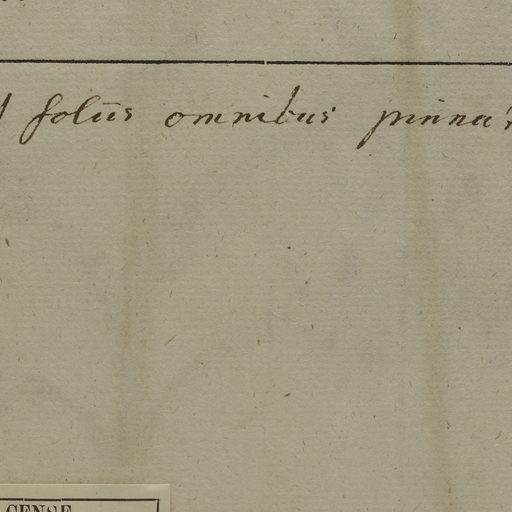 foliis omnibus pinna
CENSE